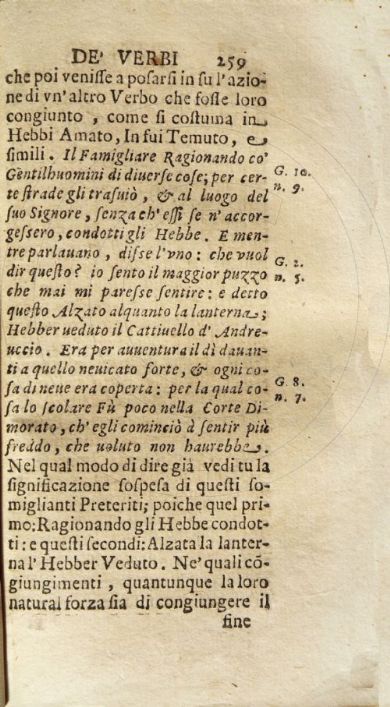 DE' VERBI 259
che poi veniſſe a poſarſi in ſu l'azio-
ne di vn'altro Verbo che foſſe loro
congiunto, come ſi coſtuma in
Hebbi Amato, In fui Temuto, e
ſimili. Il Famigliare Ragionando co'
Gentilhuomini di diuerſe coſe; per cer-
te ſtrade gli traſuiò, & al luogo del
ſuo Signore, ſenza ch' eſſi ſe n' accor-
geſſero, condotti gli Hebbe. E men-
tre parlauano, diſſe l'vno: che vuol
dir queſto? io ſento il maggior puzzo
che mai mi pareſſe ſentire: e detto
queſto Alzato alquanto la lanterna;
Hebber ueduto il Cattiuello d' Andre-
uccio. Era per auuentura il dì dauan-
ti a quello neuicato forte, & ogni co-
ſa di neue era coperta: per la qual co-
ſa lo ſcolare Fù poco nella Corte Di-
morato, ch' egli cominciò à ſentir più
freddo, che uoluto non haurebbe.
Nel qual modo di dire già vedi tu la
ſignificazione ſoſpeſa di queſti ſo-
miglianti Preteriti; poiche quel pri-
mo: Ragionando gli Hebbe condot-
ti: e queſti ſecondi: Alzata la lanter-
na l' Hebber Veduto. Ne' quali cō-
giungimenti, quantunque la loro
natural forza ſia di congiungere il
fine
G. 10.
n. 9.
G. 2.
n. 5.
G. 8.
n. 7.